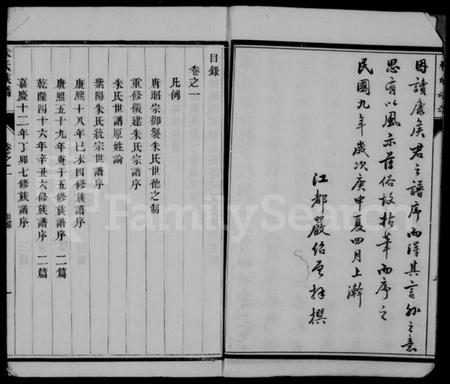 因讀康侯君之譜序而得其言外之意
思有以風示薄俗故拈筆而序之
民國九年歲次庚申夏四月上澣
江都嚴紹曾拜撰
目錄
卷之一
凡例
唐昭宗御製朱氏世德之制
重修儀建朱氏宗譜序
朱氏世譜原姓論
紫陽朱氏統宗世譜序
康熙十八年己未四修族譜序
康熙五十九年庚子五修族譜序 二篇
乾隆四十六年辛丑六修族譜序 二篇
嘉慶十二年丁卯七修族譜序
卷之一
目錄
一
FamilySearch